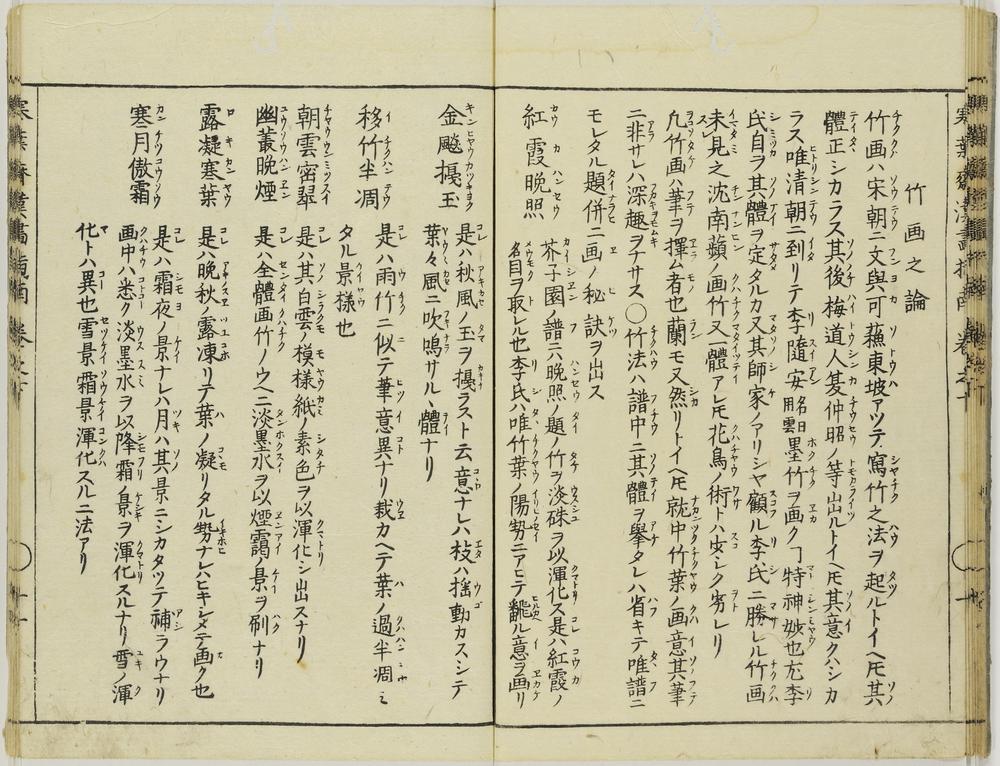 竹画之論
竹画ハ宋朝ニ文與可蘓東坡アツテ寫竹之法ヲ起ルトイヘ𪜈其
體正シカラス其後梅道人夋仲昭ノ等出ルトイヘ𪜈其意クハシカ
ラス唯清朝ニ到リテ李隨安名日用雲墨竹ヲ画クヿ特神妙也尤李
氏自ヲ其體ヲ定タルカ又其師家ノアリシヤ顧ル李氏ニ勝レル竹画
未見之沈南蘋ノ画竹又一體アレ𪜈花鳥ノ術トハ少シク劣レリ
凡竹画ハ筆ヲ擇ム者也蘭モ又然リトイヘ𪜈就中竹葉ノ画意其筆
ニ非サレハ深趣ヲナサス〇竹法ハ譜中ニ其體ヲ擧タレハ省キテ唯譜ニ
モレタル題併ニ画ノ秘訣ヲ出ス
紅霞晩照 芥子園ノ譜ニ六晩照ノ題ノ竹ヲ淡硃ヲ以渾化ス是ハ紅霞ノ
名目ヲ取レル也李氏ハ唯竹葉ノ陽勢ニアヒテ飜ル意ヲ画リ
金飈擾玉 是ハ秋風ノ玉ヲ擾ラスト云意ナレハ枝ハ揺動カスシテ
葉々風ニ吹鳴サルヽ體ナリ
移竹半凋 是ハ雨竹ニ似テ筆意異ナリ栽カヘテ葉ノ過半凋ミ
タル景様也
朝雲密翠 是ハ其白雲ノ模様紙ノ素色ヲ以渾化シ出スナリ
幽叢晩煙 是ハ全體画竹ノウヘニ淡墨水ヲ以煙靄ノ景ヲ刷ナリ
露凝寒葉 是ハ晩秋ノ露凍リテ葉ノ凝リタル勢ナレハヒキシメテ画ク也
寒月傲霜 是ハ霜夜ノ景ナレハ月ハ其景ニシカタツテ補ラウナリ
画中ハ悉ク淡墨水ヲ以降霜ノ景ヲ渾化スルナリ雪ノ渾
化トハ異也雪景霜景渾化スルニ法アリ